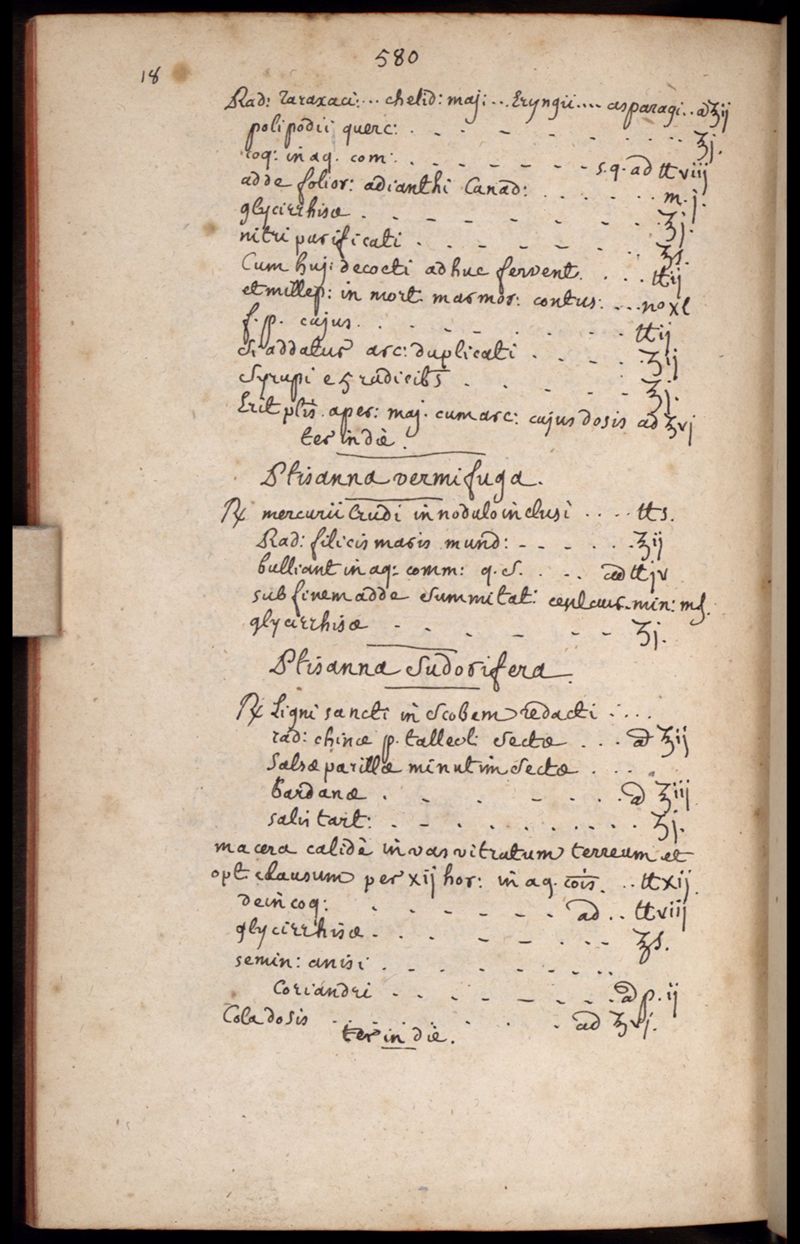 580
18
Rad: Taraxaci: ... chelid: maj: ... Eryngii .... asparagi .. a ℥ij
polipodii querc: . . . . . . . . ℥j.
coq: in aq. com: . . . . . . . s.q. ad ℔viij
adde folior: adianthi Canad: . . . . . . m.j.
glycirrhisæ . . . . . . . . . ℥j.
nitri purificati . . . . . . . . ℥s.
Cum huj: decocti adhuc fervent. . . . ℔ij
et millep: in mort. marmor: contus: . . . no XL
f. p. cujus . . . . . . . . . ℔ij
si addatur arc: duplicati . . . . . ℥ij
Syrupi e 5 radicibs . . . . . . ℥j.
Erit ptis. aper: maj. cum arc: cujus dosis ad ℥vj
ter in diè.
Ptisanna vermifuga.
℞ mercurii Crudi in nodulo inclusi . . . . ℔s.
Rad: filicis maris mund: . . . . . . ℥ij
bulliant in aq: comm: q.s. . . . ad ℔jv
sub finem adde summitat: centaur. min: ms.
glycirrhisæ . . . . . . . ℥j.
Ptisanna Sudorifera.
℞ Ligni sancti in scobem redacti . . . .
rad: chinæ p. talleol: sectæ . . . a ℥ij
Salsæparillæ minutim sectæ . . . .
bardanæ . . . . . . . . a ℥iij
salis tart: . . . . . . . . . ℥j.
macera calidè in vas vitratum terreum et
opt. clausum per xij hor: in aq. cois. . . ℔xij.
dein coq: . . . . . . . ad .. ℔viij
glycirrhisæ . . . . . . . . ℥s.
semin: anisi . . . . . . . . .
Coriandri . . . . . . . . a p. ij
Cola dosis . . . . . . . ad ℥vj.
ter in diè.